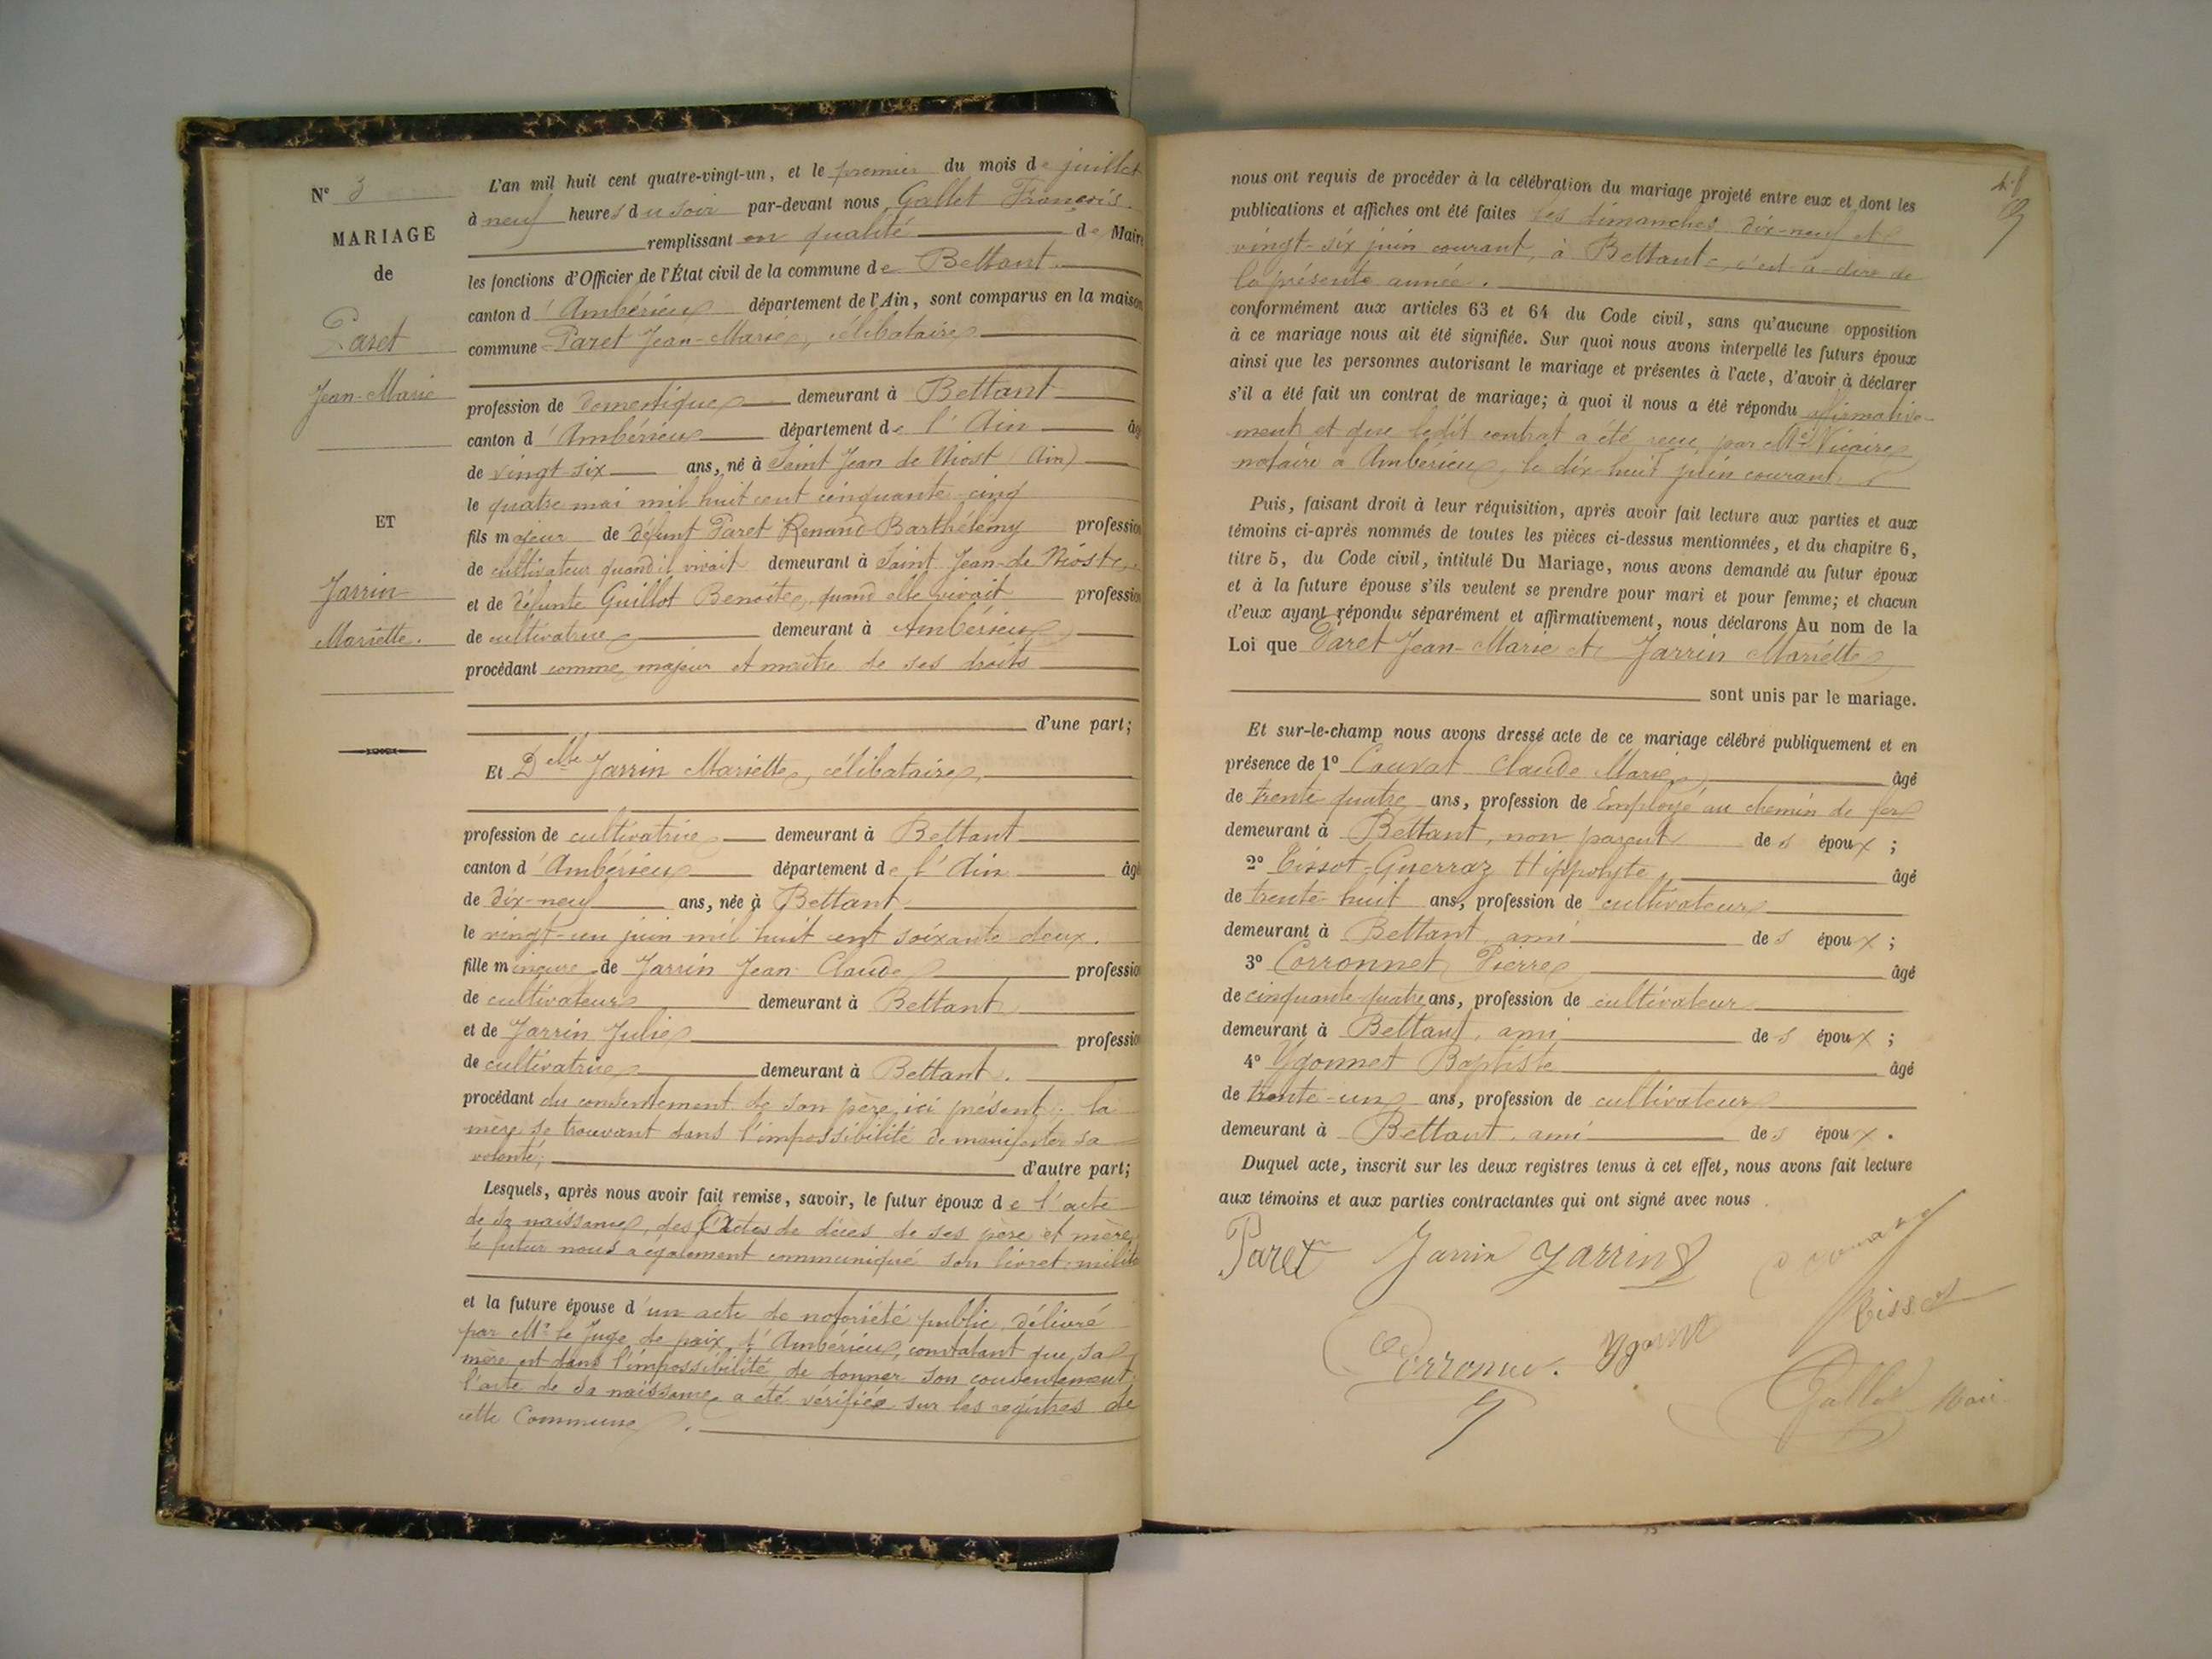 N° 3
MARIAGE
de
Paret
Jean-Marie
ET
Jarrin
Mariette.
L'an mil huit cent quatre-vingt-un, et le premier du mois de juillet
à neuf heures du soir par-devant nous Gallet François
remplissant en qualité de Maire
les fonctions d'Officier de l'État civil de la commune de Bettant
canton d'Ambérieu département de l'Ain, sont comparus en la maison
commune Paret Jean-Marie, célibataire
profession de domestique demeurant à Bettant
canton d'Ambérieu département de l'Ain âg
de vingt-six ans, né à Saint Jean de Niost (Ain)
le quatre mai mil huit cent cinquante-cinq
fils majeur de défunt Paret Renand-Barthélemy profession
de cultivateur quand il vivait demeurant à Saint Jean-de Niost
et de défunte Guillot Benoîte, quand elle vivait profession
de cultivatrice demeurant à Ambérieu
procédant comme majeur et maître de ses droits
d'une part;
Et Delle Jarrin Mariette, célibataire,
profession de cultivatrice demeurant à Bettant
canton d'Ambérieu département de l'Ain âgé
de dix-neuf ans, née à Bettant
le vingt-un juin mil huit cent soixante deux.
fille mineure de Jarrin Jean Claude profession
de cultivateur demeurant à Bettant
et de Jarrin Julie profession
de cultivatrice demeurant à Bettant.
procédant du consentement de son père, ici présent; la
mère se trouvant dans l'impossibilité de manifester sa
volonté; d'autre part;
Lesquels, après nous avoir fait remise, savoir, le futur époux de l'acte
de sa naissance, des actes de décès de ses père et mère
le futur nous a également communiqué son livret milit
et la future épouse d'un acte de notoriété public, délivré
par Mr le Juge de paix d'Ambérieu, constatant que sa
mère est dans l'impossibilité de donner son consentement;
l'acte de sa naissance a été vérifiée sur les registres de
cette Commune.
nous ont requis de procéder à la célébration du mariage projeté entre eux et dont les
publications et affiches ont été faites les dimanches dix-neuf et
vingt-six juin courant, à Bettant, c'est-à-dire de
la présente année.
conformément aux articles 63 et 64 du Code civil, sans qu'aucune opposition
à ce mariage nous ait été signifiée. Sur quoi nous avons interpellé les futurs époux
ainsi que les personnes autorisant le mariage et présentes à l'acte, d'avoir à déclarer
s'il a été fait un contrat de mariage; à quoi il nous a été répondu affirmative-
ment et que ledit contrat a été reçu par Me Vicaire
notaire à Ambérieu, le dix-huit juin courant.
Puis, faisant droit à leur réquisition, après avoir fait lecture aux parties et aux
témoins ci-après nommés de toutes les pièces ci-dessus mentionnées, et du chapitre 6,
titre 5, du Code civil, intitulé Du Mariage, nous avons demandé au futur époux
et à la future épouse s'ils veulent se prendre pour mari et pour femme; et chacun
d'eux ayant répondu séparément et affirmativement, nous déclarons Au nom de la
Loi que Paret Jean-Marie et Jarrin Mariette
sont unis par le mariage.
Et sur-le-champ nous avons dressé acte de ce mariage célébré publiquement et en
présence de 1° Couvat Claude Marie âgé
de trente-quatre ans, profession de Employé au chemin de fer
demeurant à Bettant, non parent des époux;
2° Tissot-Guerraz Hippolyte, âgé
de trente-huit ans, profession de cultivateur
demeurant à Bettant, ami des époux;
3° Corronnet Pierre âgé
de cinquante-quatre ans, profession de cultivateur
demeurant à Bettant, ami des époux;
4° Ygonnet Baptiste âgé
de trente-un ans, profession de cultivateur
demeurant à Bettant, ami des époux.
Duquel acte, inscrit sur les deux registres tenus à cet effet, nous avons fait lecture
aux témoins et aux parties contractantes qui ont signé avec nous.
Paret Jarrin Jarrin
Tissot
Ygonnet
Gallet Maire